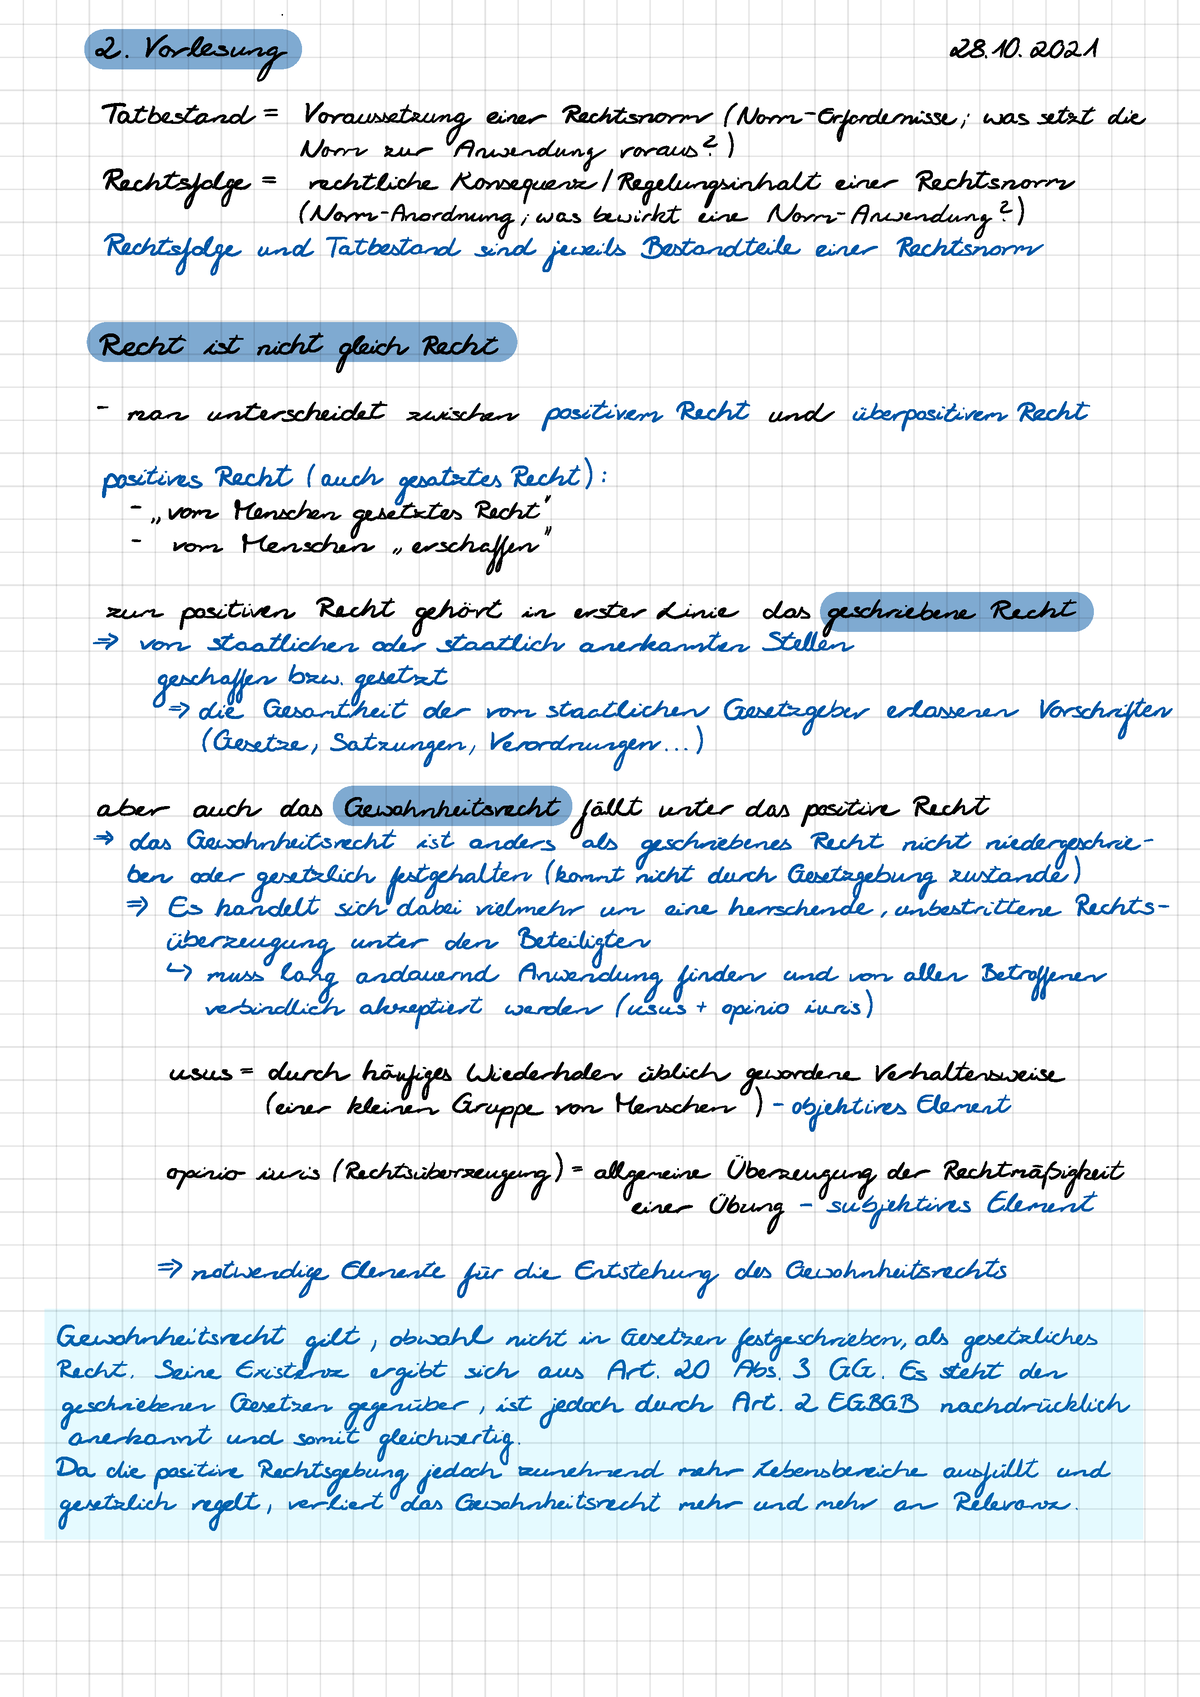 2. Vorlesung
28.10.2021
Tatbestand = Voraussetzung einer Rechtsnorm (Norm-Erfordernisse; was setzt die
Norm zur Anwendung voraus?)
Rechtsfolge = rechtliche Konsequenz/Regelungsinhalt einer Rechtsnorm
(Norm-Anordnung; was bewirkt eine Norm-Anwendung?)
Rechtsfolge und Tatbestand sind jeweils Bestandteile einer Rechtsnorm
Recht ist nicht gleich Recht
- man unterscheidet zwischen positivem Recht und überpositivem Recht
positives Recht (auch gesatztes Recht):
- „vom Menschen gesetztes Recht"
- vom Menschen „erschaffen"
zum positiven Recht gehört in erster Linie das geschriebene Recht
⇒ von staatlichen oder staatlich anerkannten Stellen
geschaffen bzw. gesetzt
⇒ die Gesamtheit der vom staatlichen Gesetzgeber erlassenen Vorschriften
(Gesetze, Satzungen, Verordnungen...)
aber auch das Gewohnheitsrecht fällt unter das positive Recht
⇒ das Gewohnheitsrecht ist anders als geschriebenes Recht nicht niedergeschrie-
ben oder gesetzlich festgehalten (kommt nicht durch Gesetzgebung zustande)
⇒ Es handelt sich dabei vielmehr um eine herrschende, unbestrittene Rechts-
überzeugung unter den Beteiligten
↳ muss lang andauernd Anwendung finden und von allen Betroffenen
verbindlich akzeptiert werden (usus + opinio iuris)
usus = durch häufiges Wiederholen üblich gewordene Verhaltensweise
(einer kleinen Gruppe von Menschen) - objektives Element
opinio iuris (Rechtsüberzeugung) = allgemeine Überzeugung der Rechtmäßigkeit
einer Übung - subjektives Element
⇒ notwendige Elemente für die Entstehung des Gewohnheitsrechts
Gewohnheitsrecht gilt, obwohl nicht in Gesetzen festgeschrieben, als gesetzliches
Recht. Seine Existenz ergibt sich aus Art. 20 Abs. 3 GG. Es steht den
geschriebenen Gesetzen gegenüber, ist jedoch durch Art. 2 EGBGB nachdrücklich
anerkannt und somit gleichwertig.
Da die positive Rechtsgebung jedoch zunehmend mehr Lebensbereiche ausfüllt und
gesetzlich regelt, verliert das Gewohnheitsrecht mehr und mehr an Relevanz.